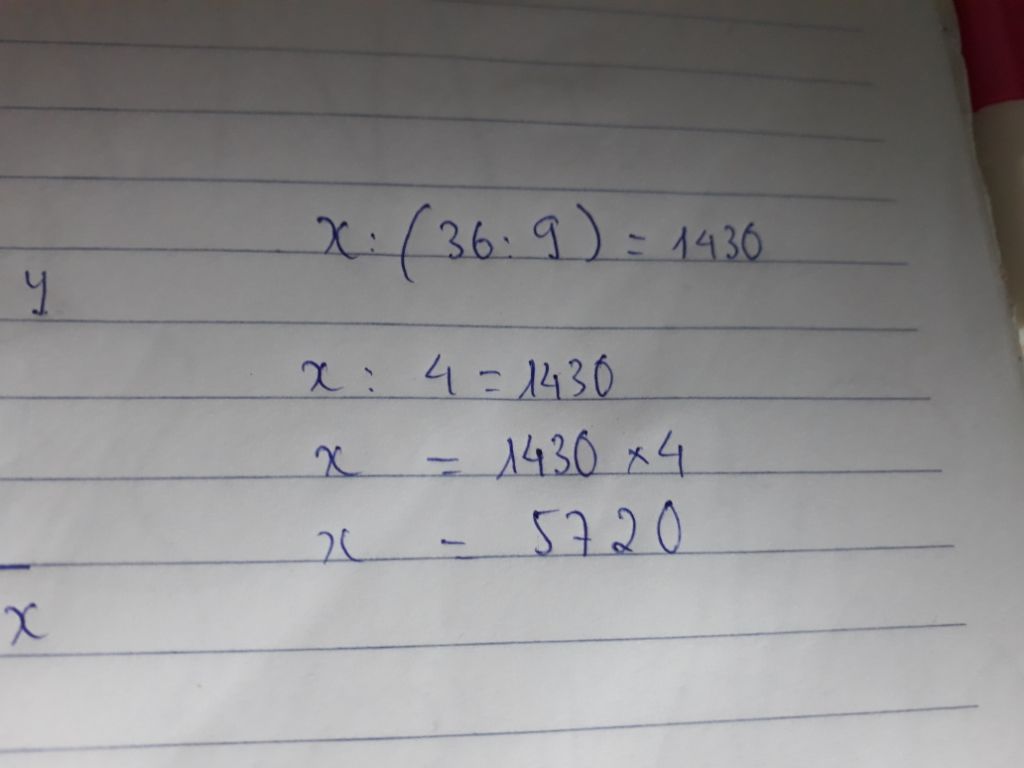 x : (36 : 9) = 1430
y
x : 4 = 1430
x = 1430 × 4
x = 5720
x